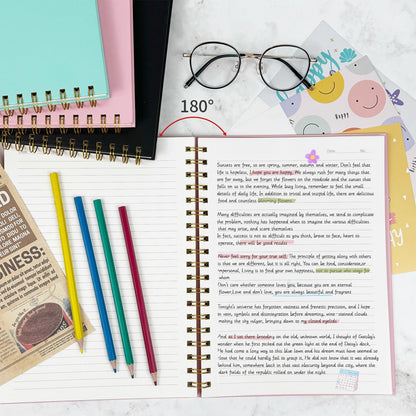 180°
happy
Date
No
Sunsets are free, so are spring, summer, autumn and winter. Don't feel that
life is hopeless, I hope you are happy. We always rush for many things that
are far away, but we forget the flowers on the roadside and the sunset that
falls on us in the evening. While busy living, remember to feel the small
details of daily life. In addition to trivial and insipid life, there are delicious
food and countless blooming flowers.
Many difficulties are actually imagined by themselves, we tend to complicate
the problem, nothing has happened when to imagine the various difficulties
that may arise, and scare themselves
In fact, success is not so difficult as you think, brave to face, heart to
operate, there will be good results!
Never feel sorry for your true self. The principle of getting along with others
is that we are different, but it is all right. You can be kind, considerate or
impersonal, Living is to find your own happiness, not to pursue who sings for
whom
Don't care whether someone loves you, because you are an eternal
flower. Love and don't love, you are always beautiful and fragrant
Tonight's universe has forgotten vastness and frenesis precision, and I hope
in vain, symbols and disintegration before dreaming, wine-stained clouds
making the sky vulgar, brewing down to my closed eyelids!
And as I sat there brooding on the old, unknown world, I thought of Gatsby's
wonder when he first picked out the green light at the end of Daisy's dock.
He had come a long way to this blue lawn and his dream must have seemed so
close that he could hardly fail to grasp it. He did not know that it was already
behind him, somewhere back in that vast obscurity beyond the city, where the
dark fields of the republic rolled on under the night.